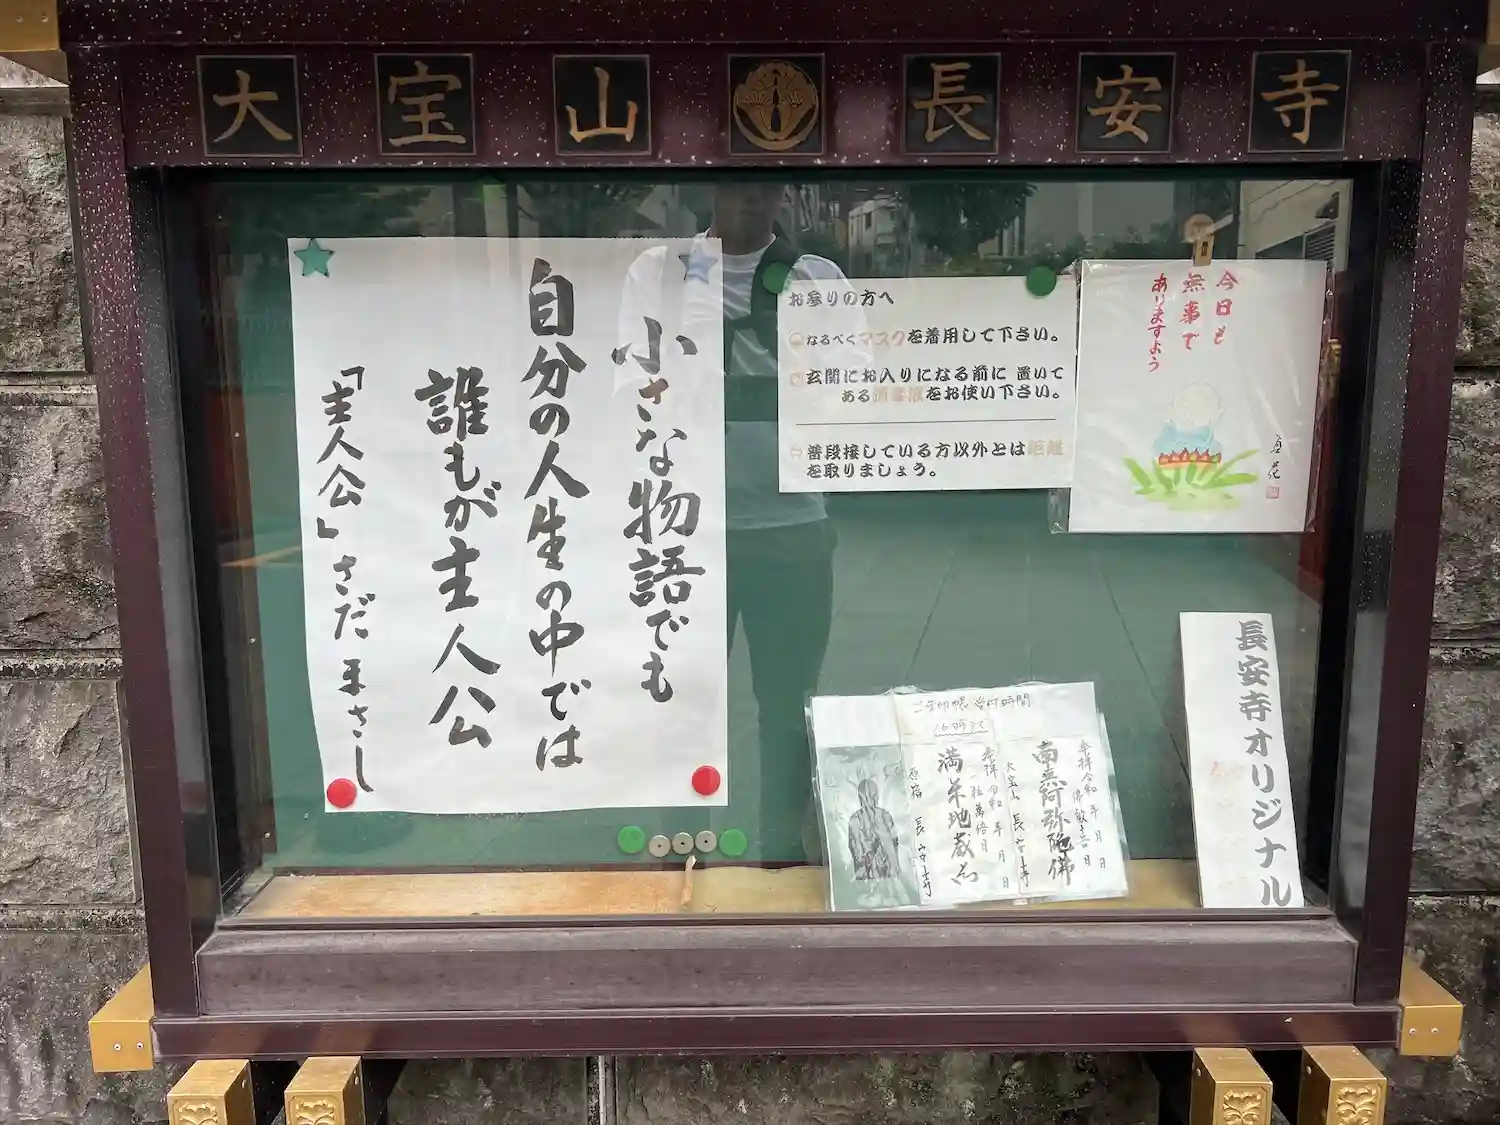 大宝山 長安寺
小さな物語でも
自分の人生の中では
誰もが主人公
「主人公」さだまさし
お参りの方へ
なるべくマスクを着用して下さい。
玄関にお入りになる前に 置いて
ある消毒液をお使い下さい。
普段接している方以外とは距離
を取りましょう。
今日も
無事で
ありますよう
ご朱印帳 受付時間
16時まで
奉拝 令和 年 月 日
南無阿弥陀佛
大宝山 長安寺
奉拝 令和 年 月 日
一粒萬倍日
満米地蔵尊
原宿 長安寺
長安寺オリジナル